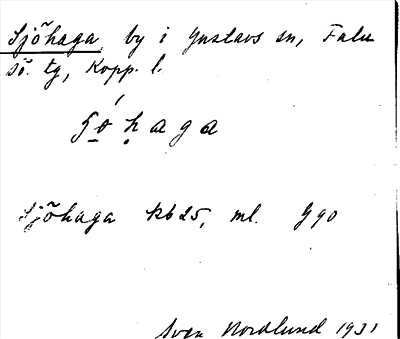 Sjöhaga, by i Gustavs sn, Falu
sö. tg, Kopp. l.
ʃö́ḥaga
Sjöhaga kb 25, ml. G90
Sven Nordlund 1931